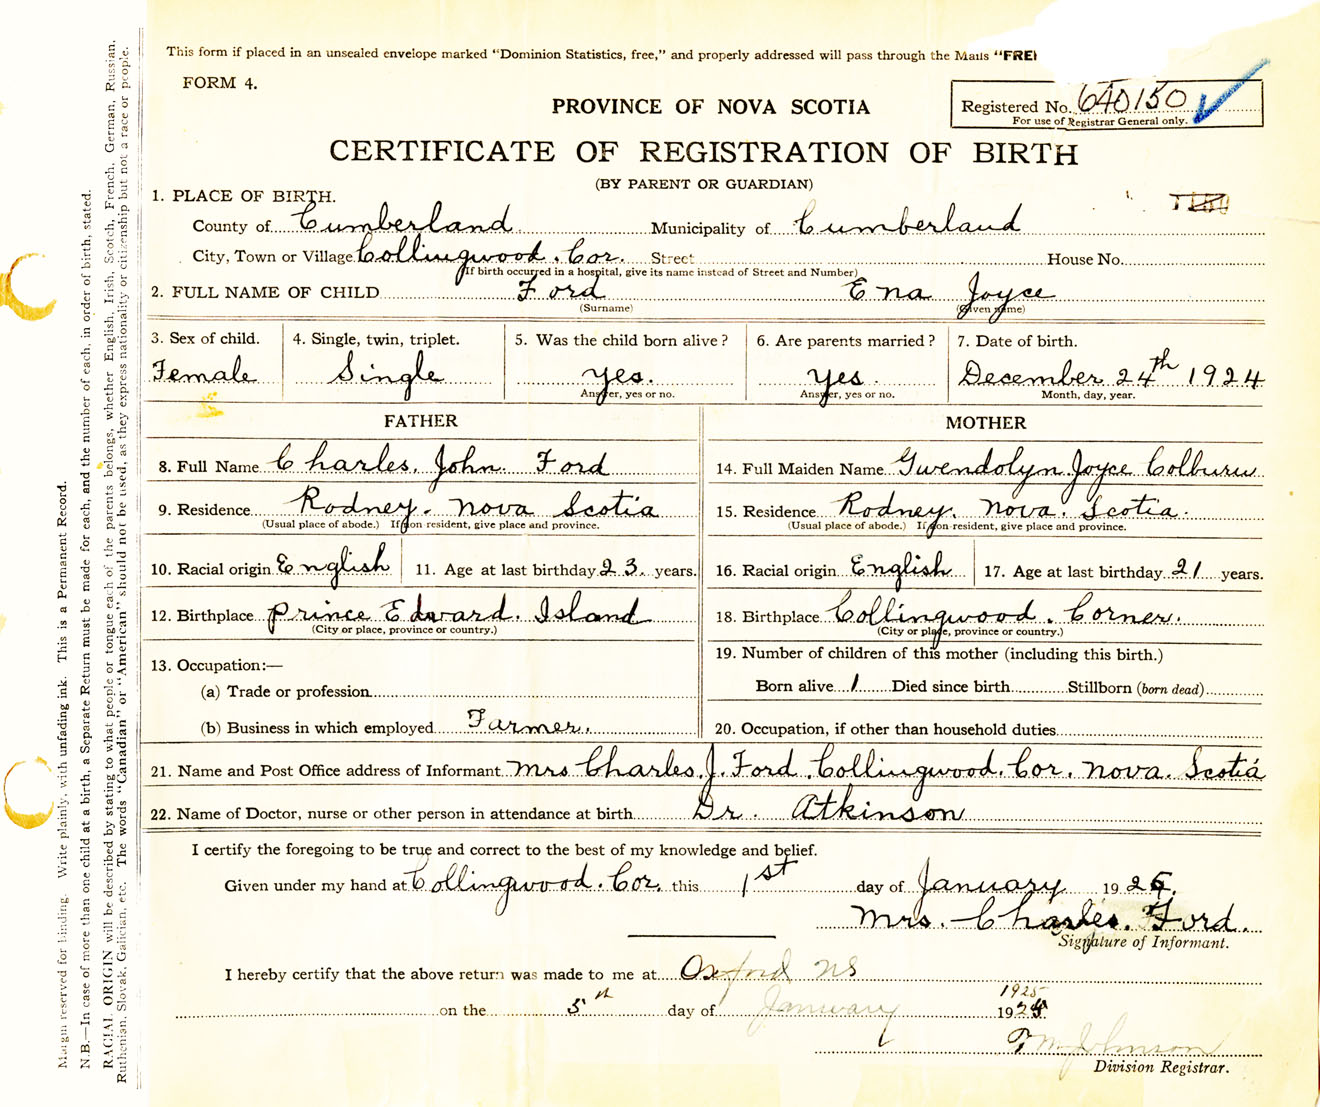 This form if placed in an unsealed envelope marked "Dominion Statistics, free," and properly addressed will pass through the Mails "FRE
FORM 4.
PROVINCE OF NOVA SCOTIA
Registered No. 640150
For use of Registrar General only.
CERTIFICATE OF REGISTRATION OF BIRTH
(BY PARENT OR GUARDIAN)
1. PLACE OF BIRTH.
County of Cumberland Municipality of Cumberland
City, Town or Village Collingwood. Cor. Street House No.
(If birth occurred in a hospital, give its name instead of Street and Number)
2. FULL NAME OF CHILD Ford Ena Joyce
(Surname) (Given name)
3. Sex of child. 4. Single, twin, triplet. 5. Was the child born alive? 6. Are parents married? 7. Date of birth.
Female Single yes. yes. December 24th 1924
Answer, yes or no. Answer, yes or no. Month, day, year.
FATHER MOTHER
8. Full Name Charles. John. Ford 14. Full Maiden Name Gwendolyn Joyce Colburn
9. Residence Rodney. Nova Scotia 15. Residence Rodney. Nova. Scotia.
(Usual place of abode.) If non resident, give place and province. (Usual place of abode.) If non-resident, give place and province.
10. Racial origin English 11. Age at last birthday 23. years. 16. Racial origin English 17. Age at last birthday 21 years.
12. Birthplace Prince Edward. Island 18. Birthplace Collingwood. Corner.
(City or place, province or country.) (City or place, province or country.)
13. Occupation:— 19. Number of children of this mother (including this birth.)
(a) Trade or profession Born alive 1 Died since birth Stillborn (born dead)
(b) Business in which employed Farmer. 20. Occupation, if other than household duties
21. Name and Post Office address of Informant Mrs Charles. J. Ford. Collingwood. Cor. Nova. Scotia
22. Name of Doctor, nurse or other person in attendance at birth Dr. Atkinson
I certify the foregoing to be true and correct to the best of my knowledge and belief.
Given under my hand at Collingwood. Cor. this 1st day of January 19
Mrs. Charles. Ford.
Signature of Informant.
I hereby certify that the above return was made to me at Oxford NS
1925
on the 5th day of January 192
Johnson
Division Registrar.
Margin reserved for binding. Write plainly, with unfading ink. This is a Permanent Record.
N.B.—In case of more than one child at a birth, a Separate Return must be made for each, and the number of each, in order of birth, stated.
RACIAL ORIGIN will be described by stating to what people or tongue each of the parents belongs, whether English, Irish, Scotch, French, German, Russian,
Ruthenian, Slovak, Galician, etc. The words "Canadian" or "American" should not be used, as they express nationality or citizenship but not a race or people.